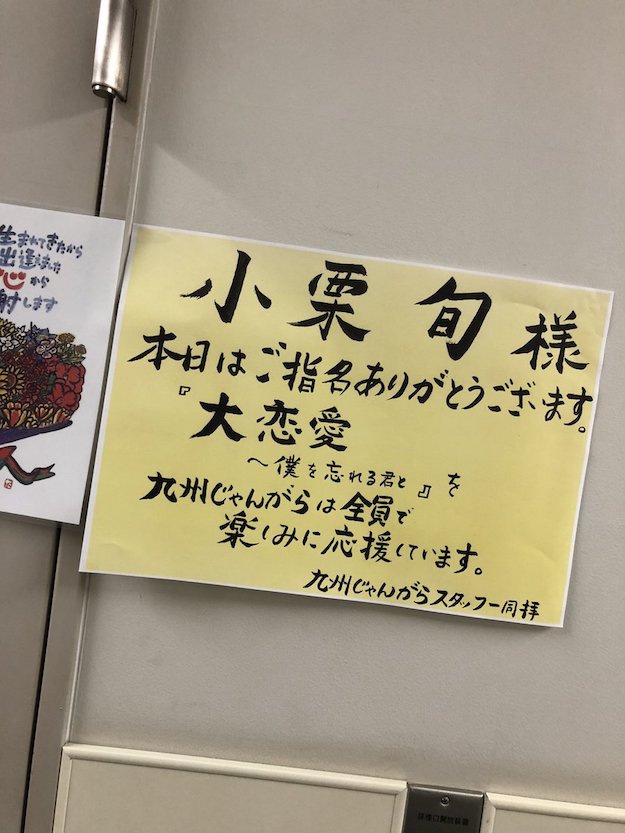 小栗旬様
本日はご指名ありがとうございます。
『大恋愛
～僕を忘れる君と』を
九州じゃんがらは全員で
楽しみに応援しています。
九州じゃんがらスタッフ一同拝
生まれてきたから
出逢えた
心から
射します